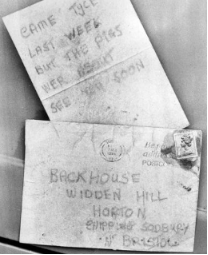 CAME TYLE
LAST WEEK
BUT THE PIGS
WER ABOUT
SEE YOU SOON
BACKHOUSE
WIDDEN HILL
HORTON
CHIPPING SODBURY
Nr BRISTOL